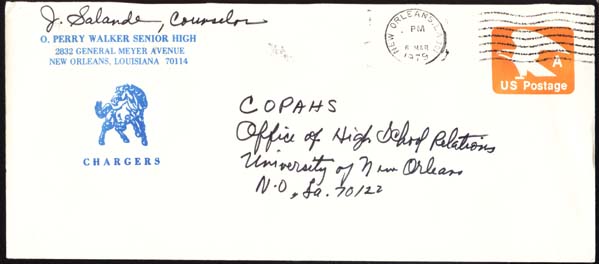 J. Salande, Counselor
O. PERRY WALKER SENIOR HIGH
2832 GENERAL MEYER AVENUE
NEW ORLEANS, LOUISIANA 70114
CHARGERS
NEW ORLEANS, LA
PM
6 MAR
1979
A
US Postage
COPAHS
Office of High School Relations
University of New Orleans
N.O., La. 70122